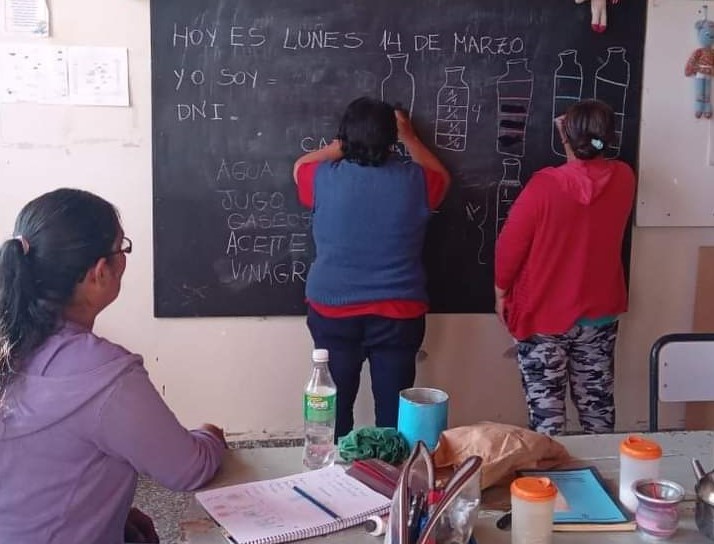 HOY ES LUNES 14 DE MARZO
YO SOY =
DNI.
CA
AGUA
JUGO
GASEOS
ACEITE
VINAGR
1/4
1/4
1/4
1/4
4